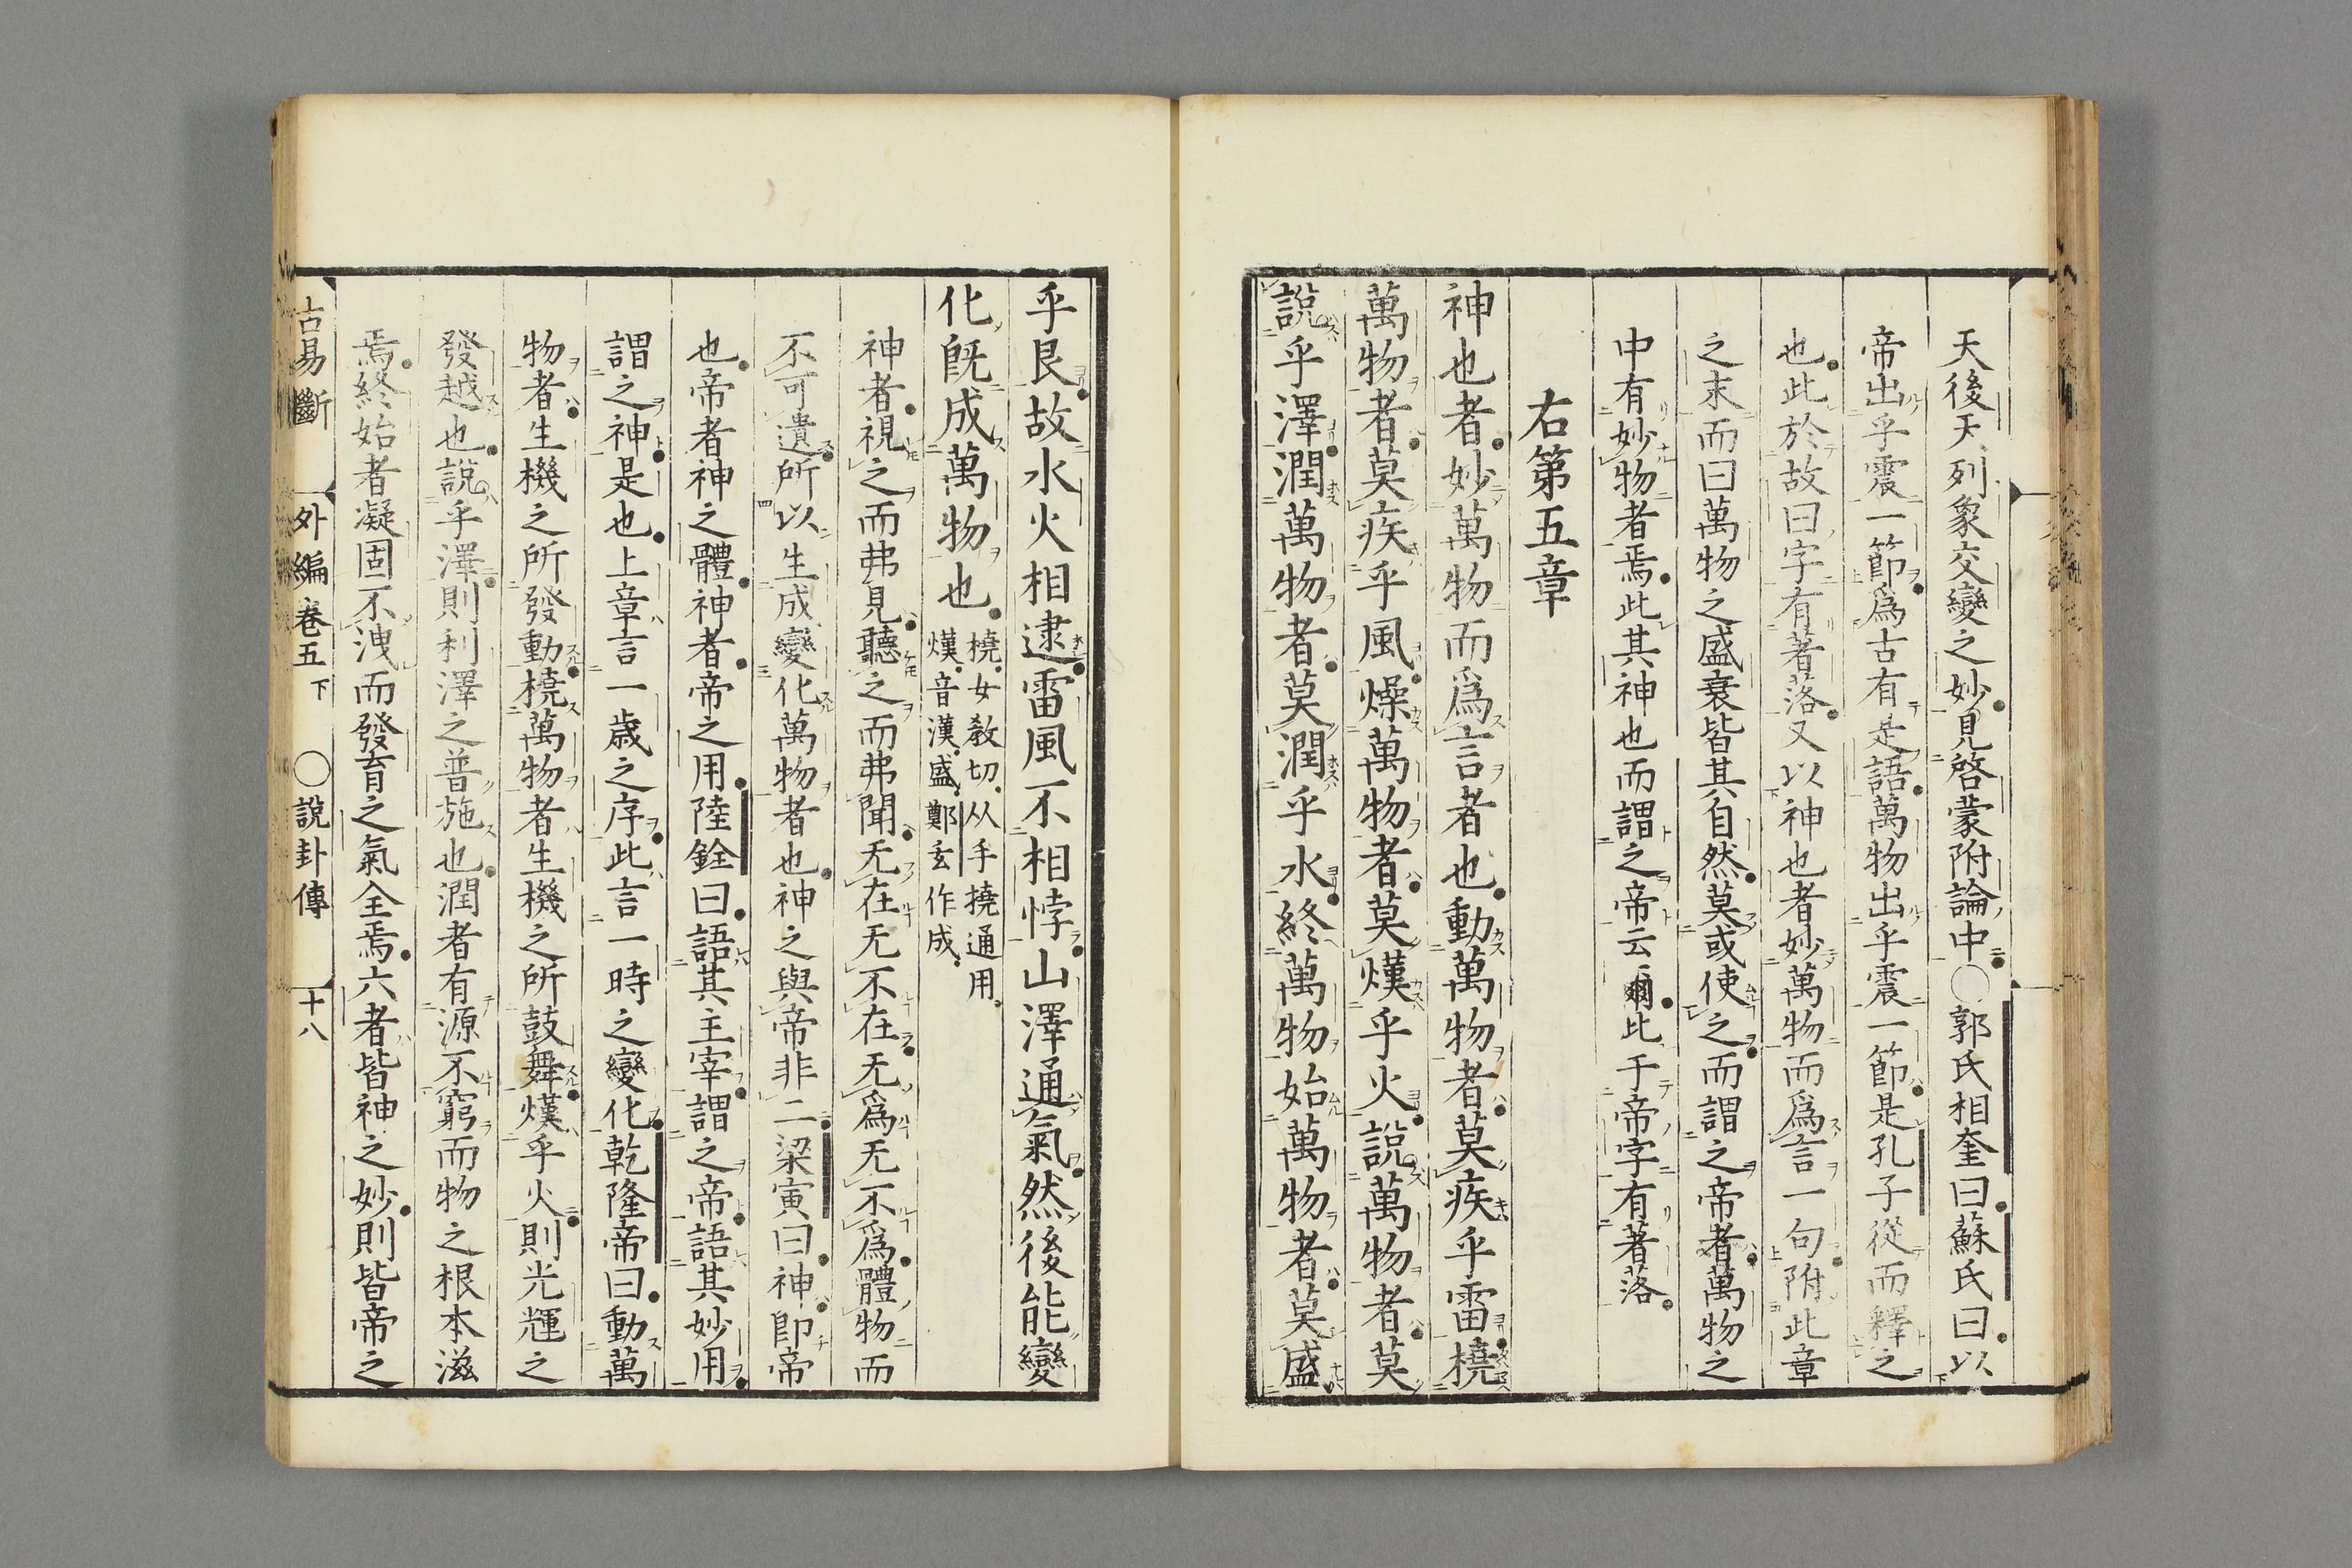 天後天列象交變之妙見啓蒙附論中○郭氏相奎曰蘇氏曰以
帝出乎震一節爲古有是語萬物出乎震一節是孔子從而釋之
也此於故曰字有著落又以神也者妙萬物而爲言一句附此章
之末而曰萬物之盛衰皆其自然莫或使之而謂之帝者萬物之
中有妙物者焉此其神也而謂之帝云爾此于帝字有著落
右第五章
神也者妙萬物而爲言者也動萬物者莫疾乎雷橈
萬物者莫疾乎風燥萬物者莫熯乎火說萬物者莫
說乎澤潤萬物者莫潤乎水終萬物始萬物者莫盛
乎艮故水火相逮雷風不相悖山澤通氣然後能變
化旣成萬物也橈女教切从手撓通用
熯音漢盛鄭玄作成
神者視之而弗見聽之而弗聞无在无不在无爲无不爲體物而
不可遺所以生成變化萬物者也神之與帝非二梁寅曰神卽帝
也帝者神之體神者帝之用陸銓曰語其主宰謂之帝語其妙用
謂之神是也上章言一歲之序此言一時之變化乾隆帝曰動萬
物者生機之所發動橈萬物者生機之所鼓舞熯乎火則光輝之
發越也說乎澤則利澤之普施也潤者有源不窮而物之根本滋
焉終始者凝固不洩而發育之氣全焉六者皆神之妙則皆帝之
古易斷 外編卷五下 ○說卦傳 十八